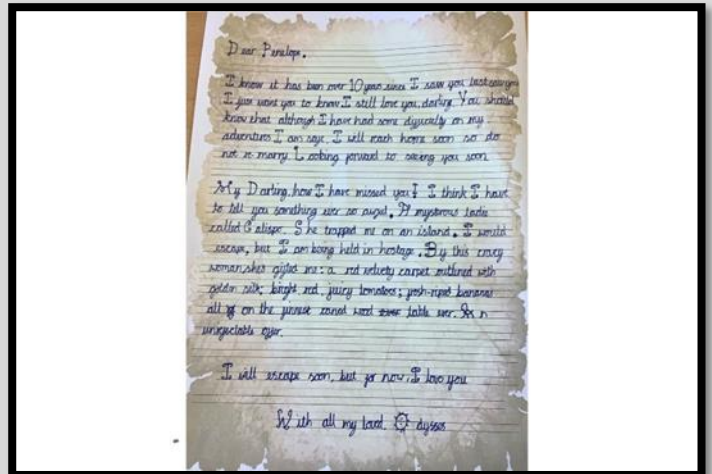 Dear Penelope,
I know it has been over 10 years since I saw you last saw you
I just want you to know I still love you, darling. You should
know that although I have had some dyfficulty on my
adventures I am safe. I will reach home soon so do
not re-marry. Looking forward to seeing you soon
My Darling, how I have missed you! I think I have
to tell you something ever so awful. A mysterous lade
called Calispo. She trapped me on an island. I would
escape, but I am being held in hostage. By this crazy
woman, shes gifted me: a red velvety carpet outlined with
golden silk; bright red, juicy tomatoes; fresh-riped bananas
all on the finest carved wood table ever. An
unrejectable offer.
I will escape soon, but for now, I love you
With all my love. Odysses